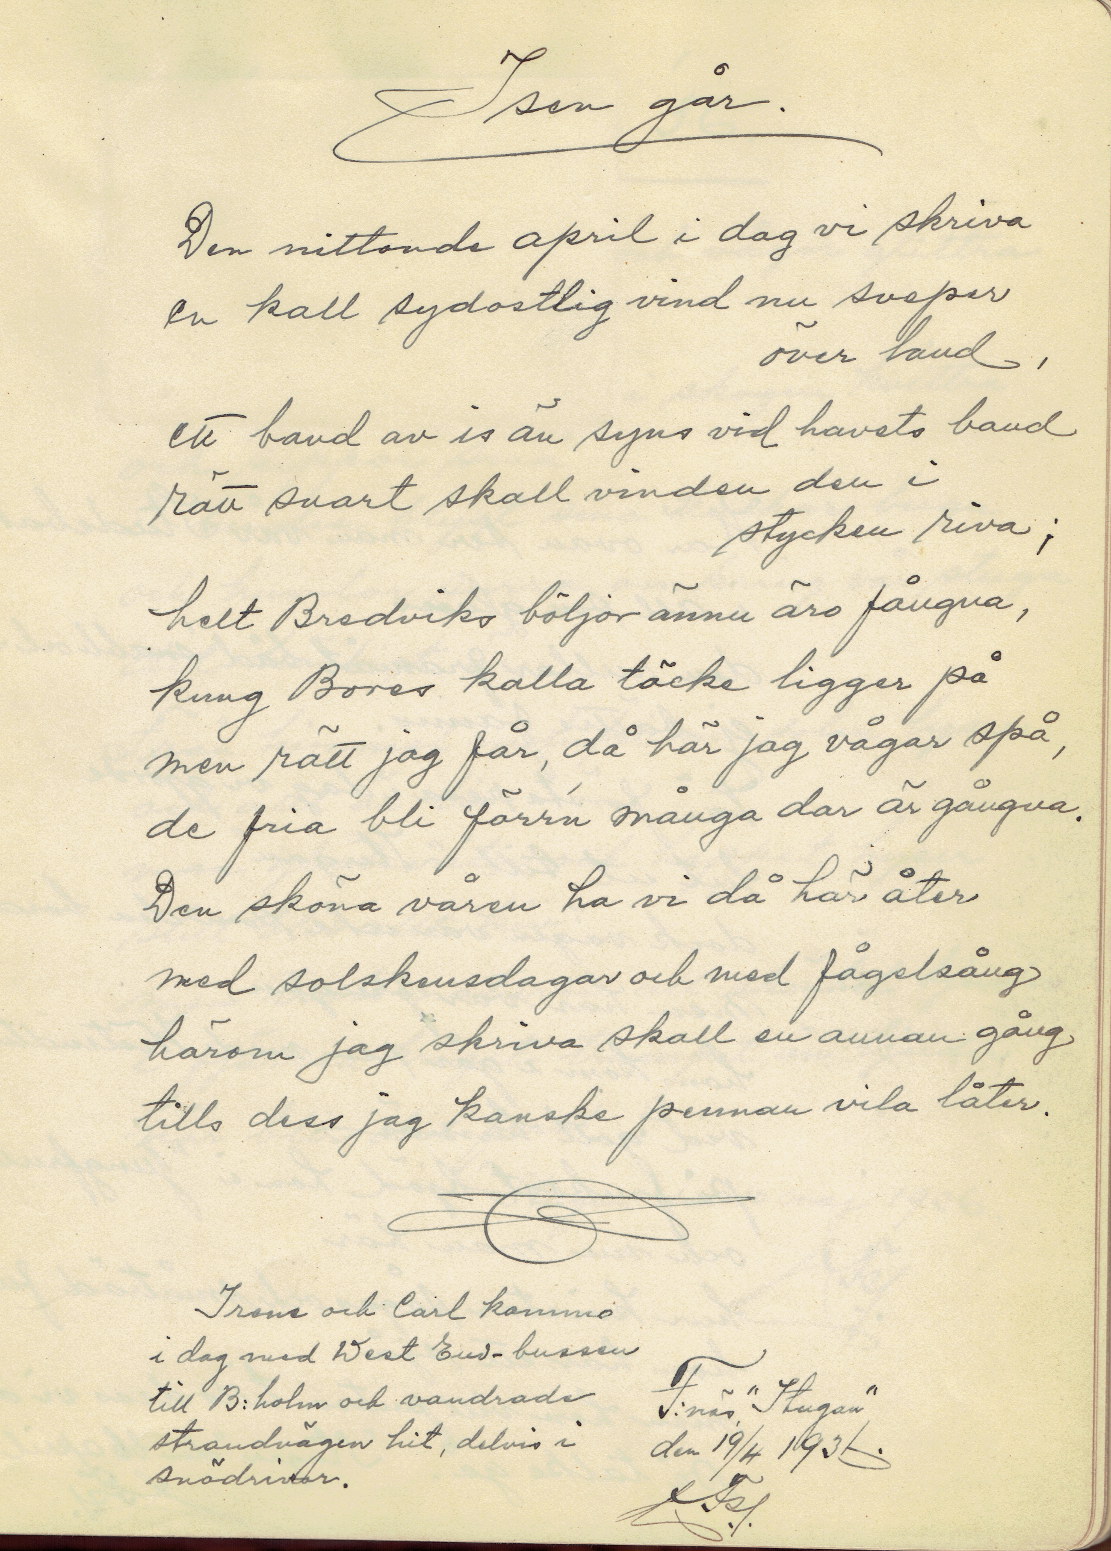 Isen går.
Den nittonde april i dag vi skriva
en kall sydostlig vind nu sveper
över land,
ett band av is än syns vid havets band
rätt snart skall vinden den i
stycken riva;
helt Bredviks böljor ännu äro fångna,
kung Bores kalla täcke ligger på
men rätt jag får, då här jag vågar spå,
de fria bli förr'n många dar är gångna.
Den sköna våren ha vi då här åter
med solskensdagar och med fågelsång
härom jag skriva skall en annan gång
tills dess jag kanske pennan vila låter.
Irene och Carl kommo
i dag med West End-bussen
till B:holm och vandrade
strandvägen hit, delvis i
snödrivor.
F:näs, "Stugan"
den 19/4 1931.